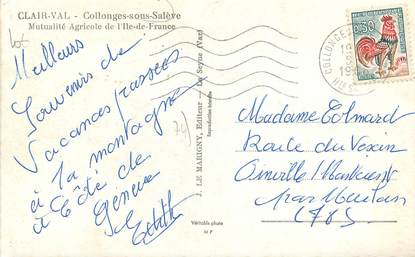 CLAIR-VAL - Collonges-sous-Salève
Mutualité Agricole de l'Ile-de-France
Meilleurs
Souvenirs de
Vacances passées
à la montagne
à Côté de
Genève
J. LE MARIGNY, Editeur - La Seyne (Var)
Reproduction interdite
Véritable photo
M P
0,30
COLLONGES
Madame Colmard
Route du Vexin
par Meulan
(78)